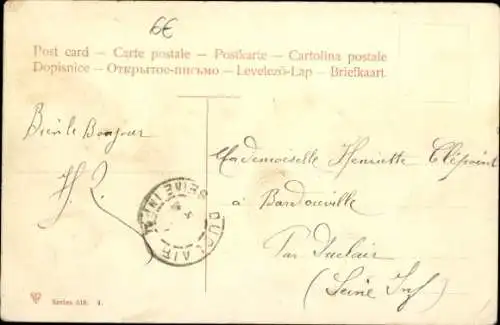 6€
Post card – Carte postale – Postkarte – Cartolina postale
Dopisnice – Открытое-письмо – Levelező-Lap – Briefkaart
Bien le Bonjour
Mademoiselle Henriette Clépoint
à Bardouville
Par Duclair
(Seine Inf)
DUCLAIR
SEINE INF
Series 518. 1.